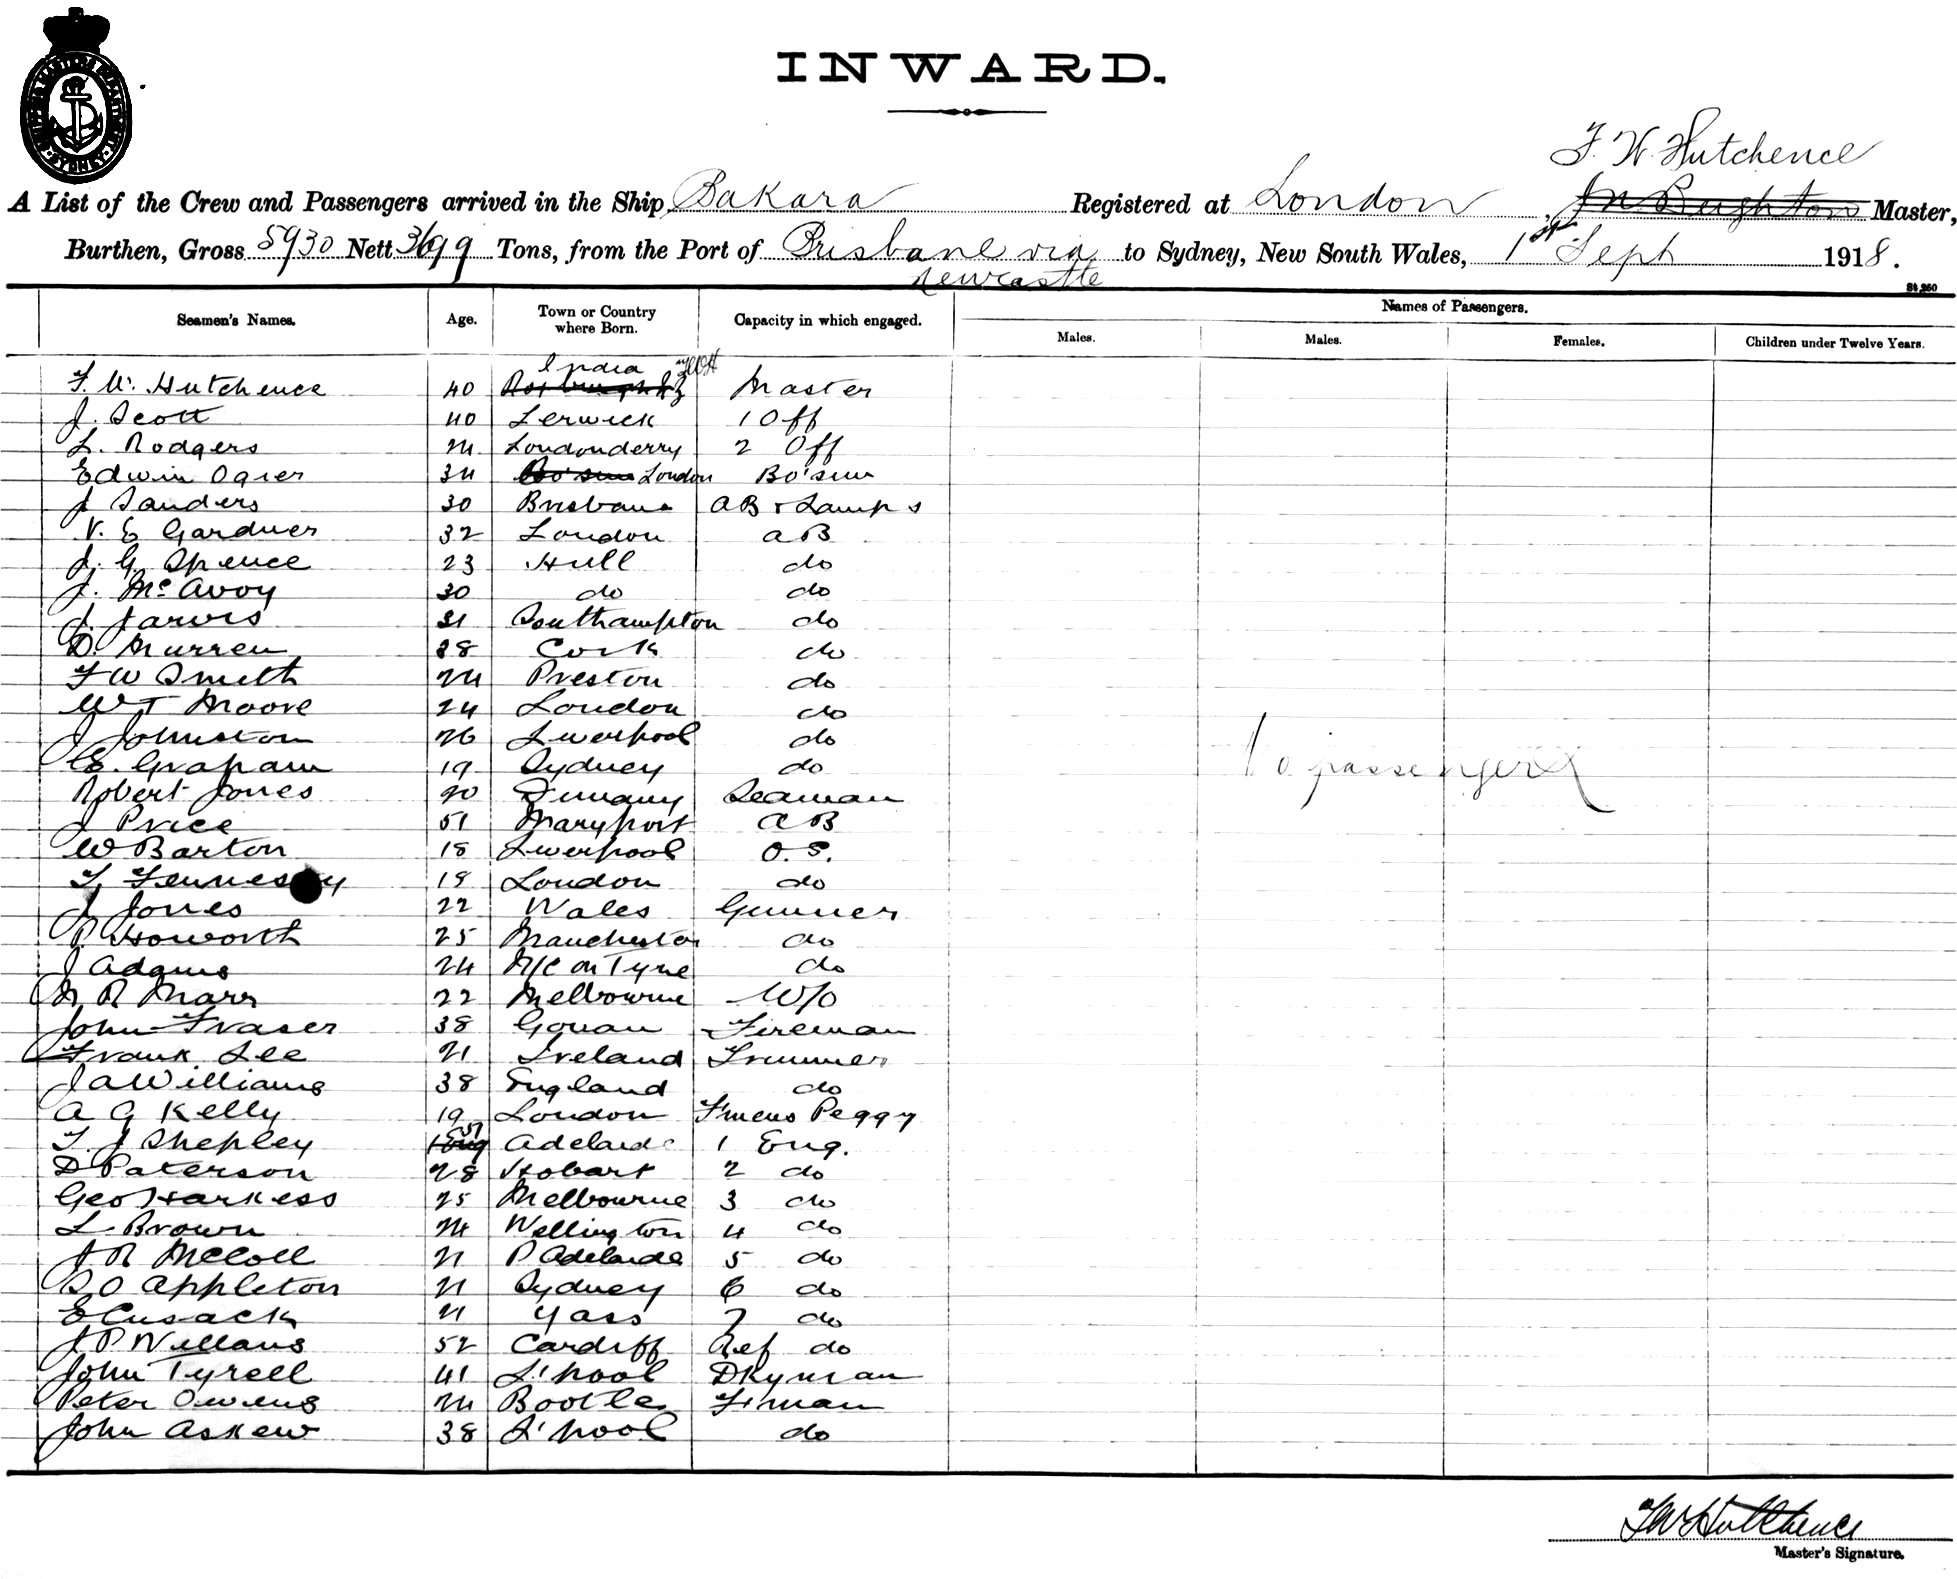 INWARD.
F. W. Hutchence
A List of the Crew and Passengers arrived in the Ship Bakara Registered at London, Master,
Burthen, Gross 5930 Nett 3699 Tons, from the Port of Brisbane via to Sydney, New South Wales, 1st Sept 1918.
Newcastle
Seamen's Names. Age. Town or Country where Born. Capacity in which engaged. Names of Passengers.
Males. Males. Females. Children under Twelve Years.
India FWH
F. W. Hutchence 40 Master
J. Scott 40 Lerwick 1 Off
L. Rodgers 24 Londonderry 2 Off
Edwin Ogier 34 Bo'sun London Bo'sun
J Sanders 30 Brisbane AB & Lamps
V. E Gardner 32 London AB
J. G. Spence 23 Hull do
J. McAvoy 30 do do
J. Jarvis 31 Southampton do
D. Murren 28 Cork do
F W Smith 24 Preston do
W T Moore 24 London do
J Johnston 26 Liverpool do
C E. Graham 19 Sydney do
Robert Jones 20 Seaman
J Price 51 Maryport AB
W Barton 18 Liverpool O.S.
T. 18 London do
J Jones 22 Wales Gunner
P Howorth 25 Manchester do
J Adams 24 N/C on Tyne do
R Marr 22 Melbourne W/O
John Fraser 38 Govan Fireman
Frank Lee 21 Ireland Trimmer
J A Williams 38 England do
A G Kelly 19 London F'mens Peggy
T. J Shepley Adelaide 1 Eng.
D Paterson 28 Hobart 2 do
Geo Harkess 25 Melbourne 3 do
L Brown 24 Wellington 4 do
J R McColl 21 P Adelaide 5 do
S O Appleton 21 Sydney 6 do
E Cusack 21 Yass 7 do
J P Willans 52 Cardiff Ref do
John Tyrell 41 L'pool Dkyman
Peter Owens 24 Bootle F'man
John Askew 38 L'pool do
No passengers
FW Hutchence
Master's Signature.